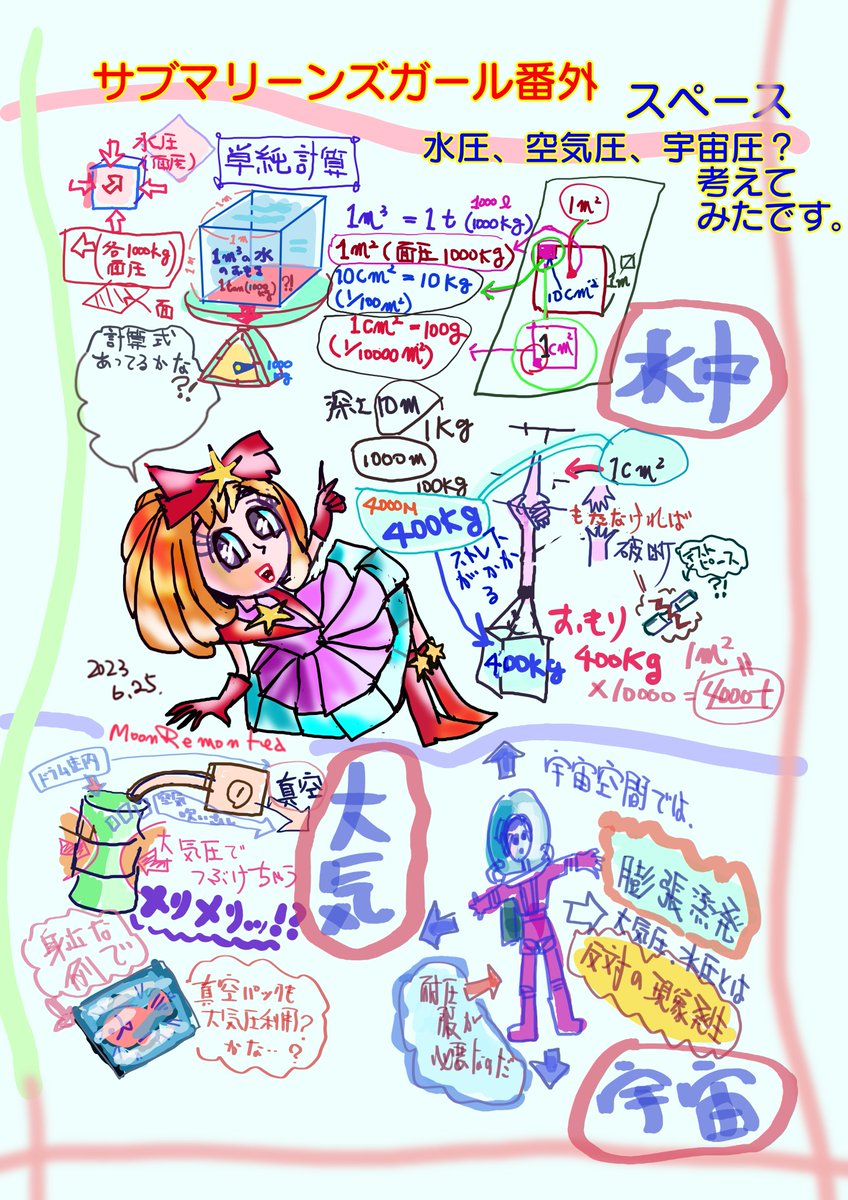 サブマリーンズガール番外
スペース
水圧、空気圧、宇宙圧？
考えて
みたです。
水圧
(面圧)
単純計算
1m
1m
1m
1m³の水
のおもさ
1ton(1000kg)?!
(各1000kg)
面圧
面
1000kg
1000ℓ
1m³=1t(1000kg)
1m²(面圧1000kg)
10cm²=10kg
(1/100m²)
1cm²=100g
(1/10000m²)
1m²
10cm²
1m
1cm²
水中
計算式
あってるかな
?!
深さ10m
1kg
1000m
100kg
4000m
400kg
ストレス
がかかる
1cm²
もたなければ
破断
400kg
おもり
400kg
1m²
×10000=4000t
2023
6.25.
MoonRemontea
ドラム缶内
空気
真空
大気圧で
つぶけちゃう
メリメリッ!?
大気
身近な
例で
真空パックも
大気圧利用?
かな…?
宇宙空間では、
膨張蒸発
大気圧、水圧とは
反対の現象発生
耐圧
服が
必要なのだ
宇宙